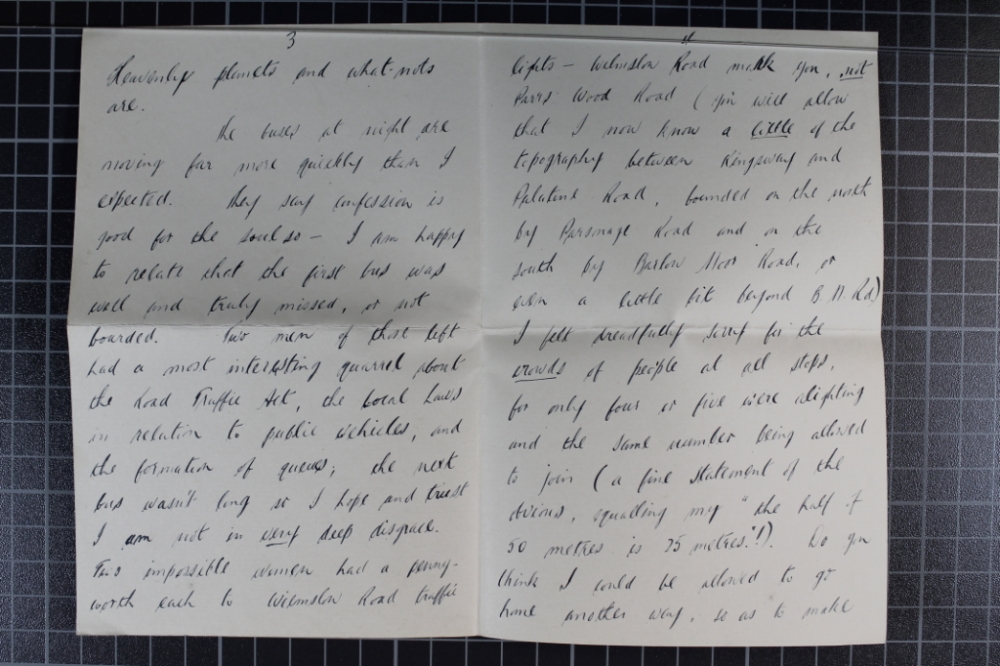 3
Heavenly planets and what-nots
are.
The buses at night are
moving far more quickly than I
expected. They say confession is
good for the soul so – I am happy
to relate that the first bus was
well and truly missed, or not
boarded. Two men of those left
had a most interesting quarrel about
the Road Traffic Act, the Local Laws
in relation to public vehicles, and
the formation of queues; the next
bus wasn't long so I hope and trust
I am not in very deep disgrace.
Two impossible women had a penny-
worth each to Wilmslow Road traffic
4
lights – Wilmslow Road mark you, not
Parrs Wood Road (you will allow
that I now know a little of the
topography between Kingsway and
Palatine Road, bounded on the north
by Parsonage Road and on the
south by Barlow Moor Road, or
even a little bit beyond B. M. Rd)
I felt dreadfully sorry for the
crowds of people at all stops,
for only four or five were alighting
and the same number being allowed
to join (a fine statement of the
obvious, equalling my "the half of
50 metres is 25 metres."!). Do you
think I could be allowed to go
home another way, so as to make